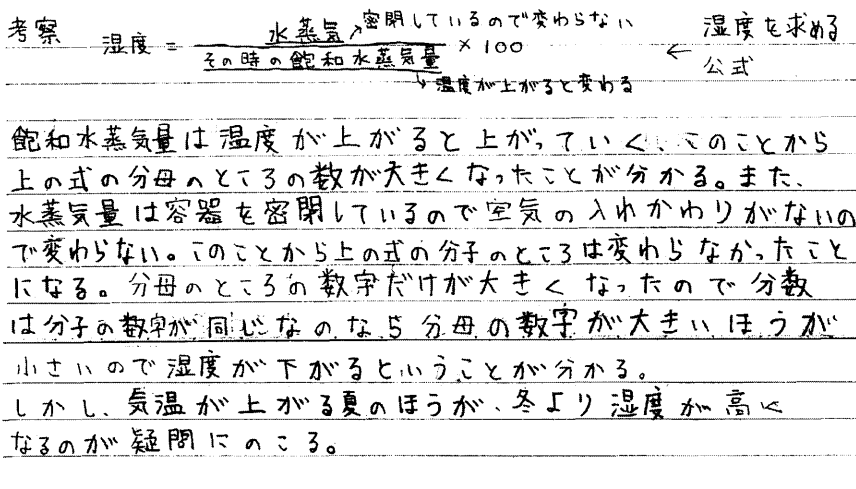 考察
湿度 = 水蒸気 / その時の飽和水蒸気量 × 100
密閉しているので変わらない
温度が上がると変わる
← 湿度を求める
公式
飽和水蒸気量は温度が上がると上がっていく、このことから
上の式の分母のところの数が大きくなったことが分かる。また、
水蒸気量は容器を密閉しているので空気の入れかわりがないの
で変わらない。このことから上の式の分子のところは変わらなかったこと
になる。分母のところの数字だけが大きくなったので分数
は分子の数字が同じなのなら分母の数字が大きいほうが
小さいので湿度が下がるということが分かる。
しかし、気温が上がる夏のほうが、冬より湿度が高く
なるのが疑問にのこる。